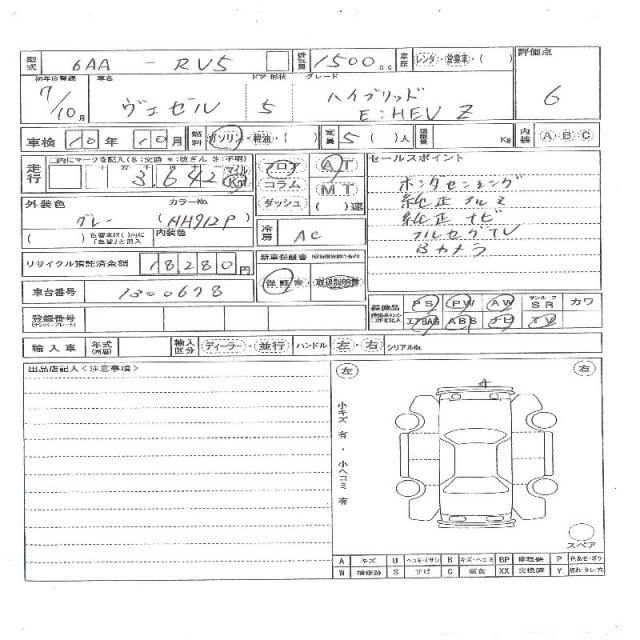 型式 6AA - RV5 排気量 1500 cc 車歴 レンタ・営業車・( ) 評価点
初年度登録 車名 ドア 形状 グレード
7/10月 ヴェゼル 5 ハイブリッド E:HEV Z 6
車検 10年 10月 燃料 ガソリン・軽油・( ) 定員 5( )人 積載量 Kg 内装 A・B・C
走行 □内にマークを記入($:交換 *:改ざん #:不明)
十万 万 千 百 十 一 マイル
3 6 4 2 Km フロア コラム ダッシュ AT MT ( )速
セールスポイント
ホンダセンシング
純正アルミ
純正ナビ
フルセグTV
Bカメラ
外装色 カラーNo.
グレー (NH912P)
( ) 色替車は( )内に「色替」と記入 内装色
冷房 AC
リサイクル預託済金額 18280円
新車保証書
保証書・取扱説明書
車台番号 1300678
登録番号 (ナンバープレート)
装備品 PS PW AW サンルーフ SR カワ
エアBAG ABS ナビ TV
輸入車 年式 輸入区分 ディーラー・並行 ハンドル 左・右 シリアルNo.
出品店記入<注意事項>
左 右
小キズ有・小ヘコミ有
スペア
A キズ U B キズ・ヘコミ BP P
W S サビ C 腐食 XX 交換済 Y